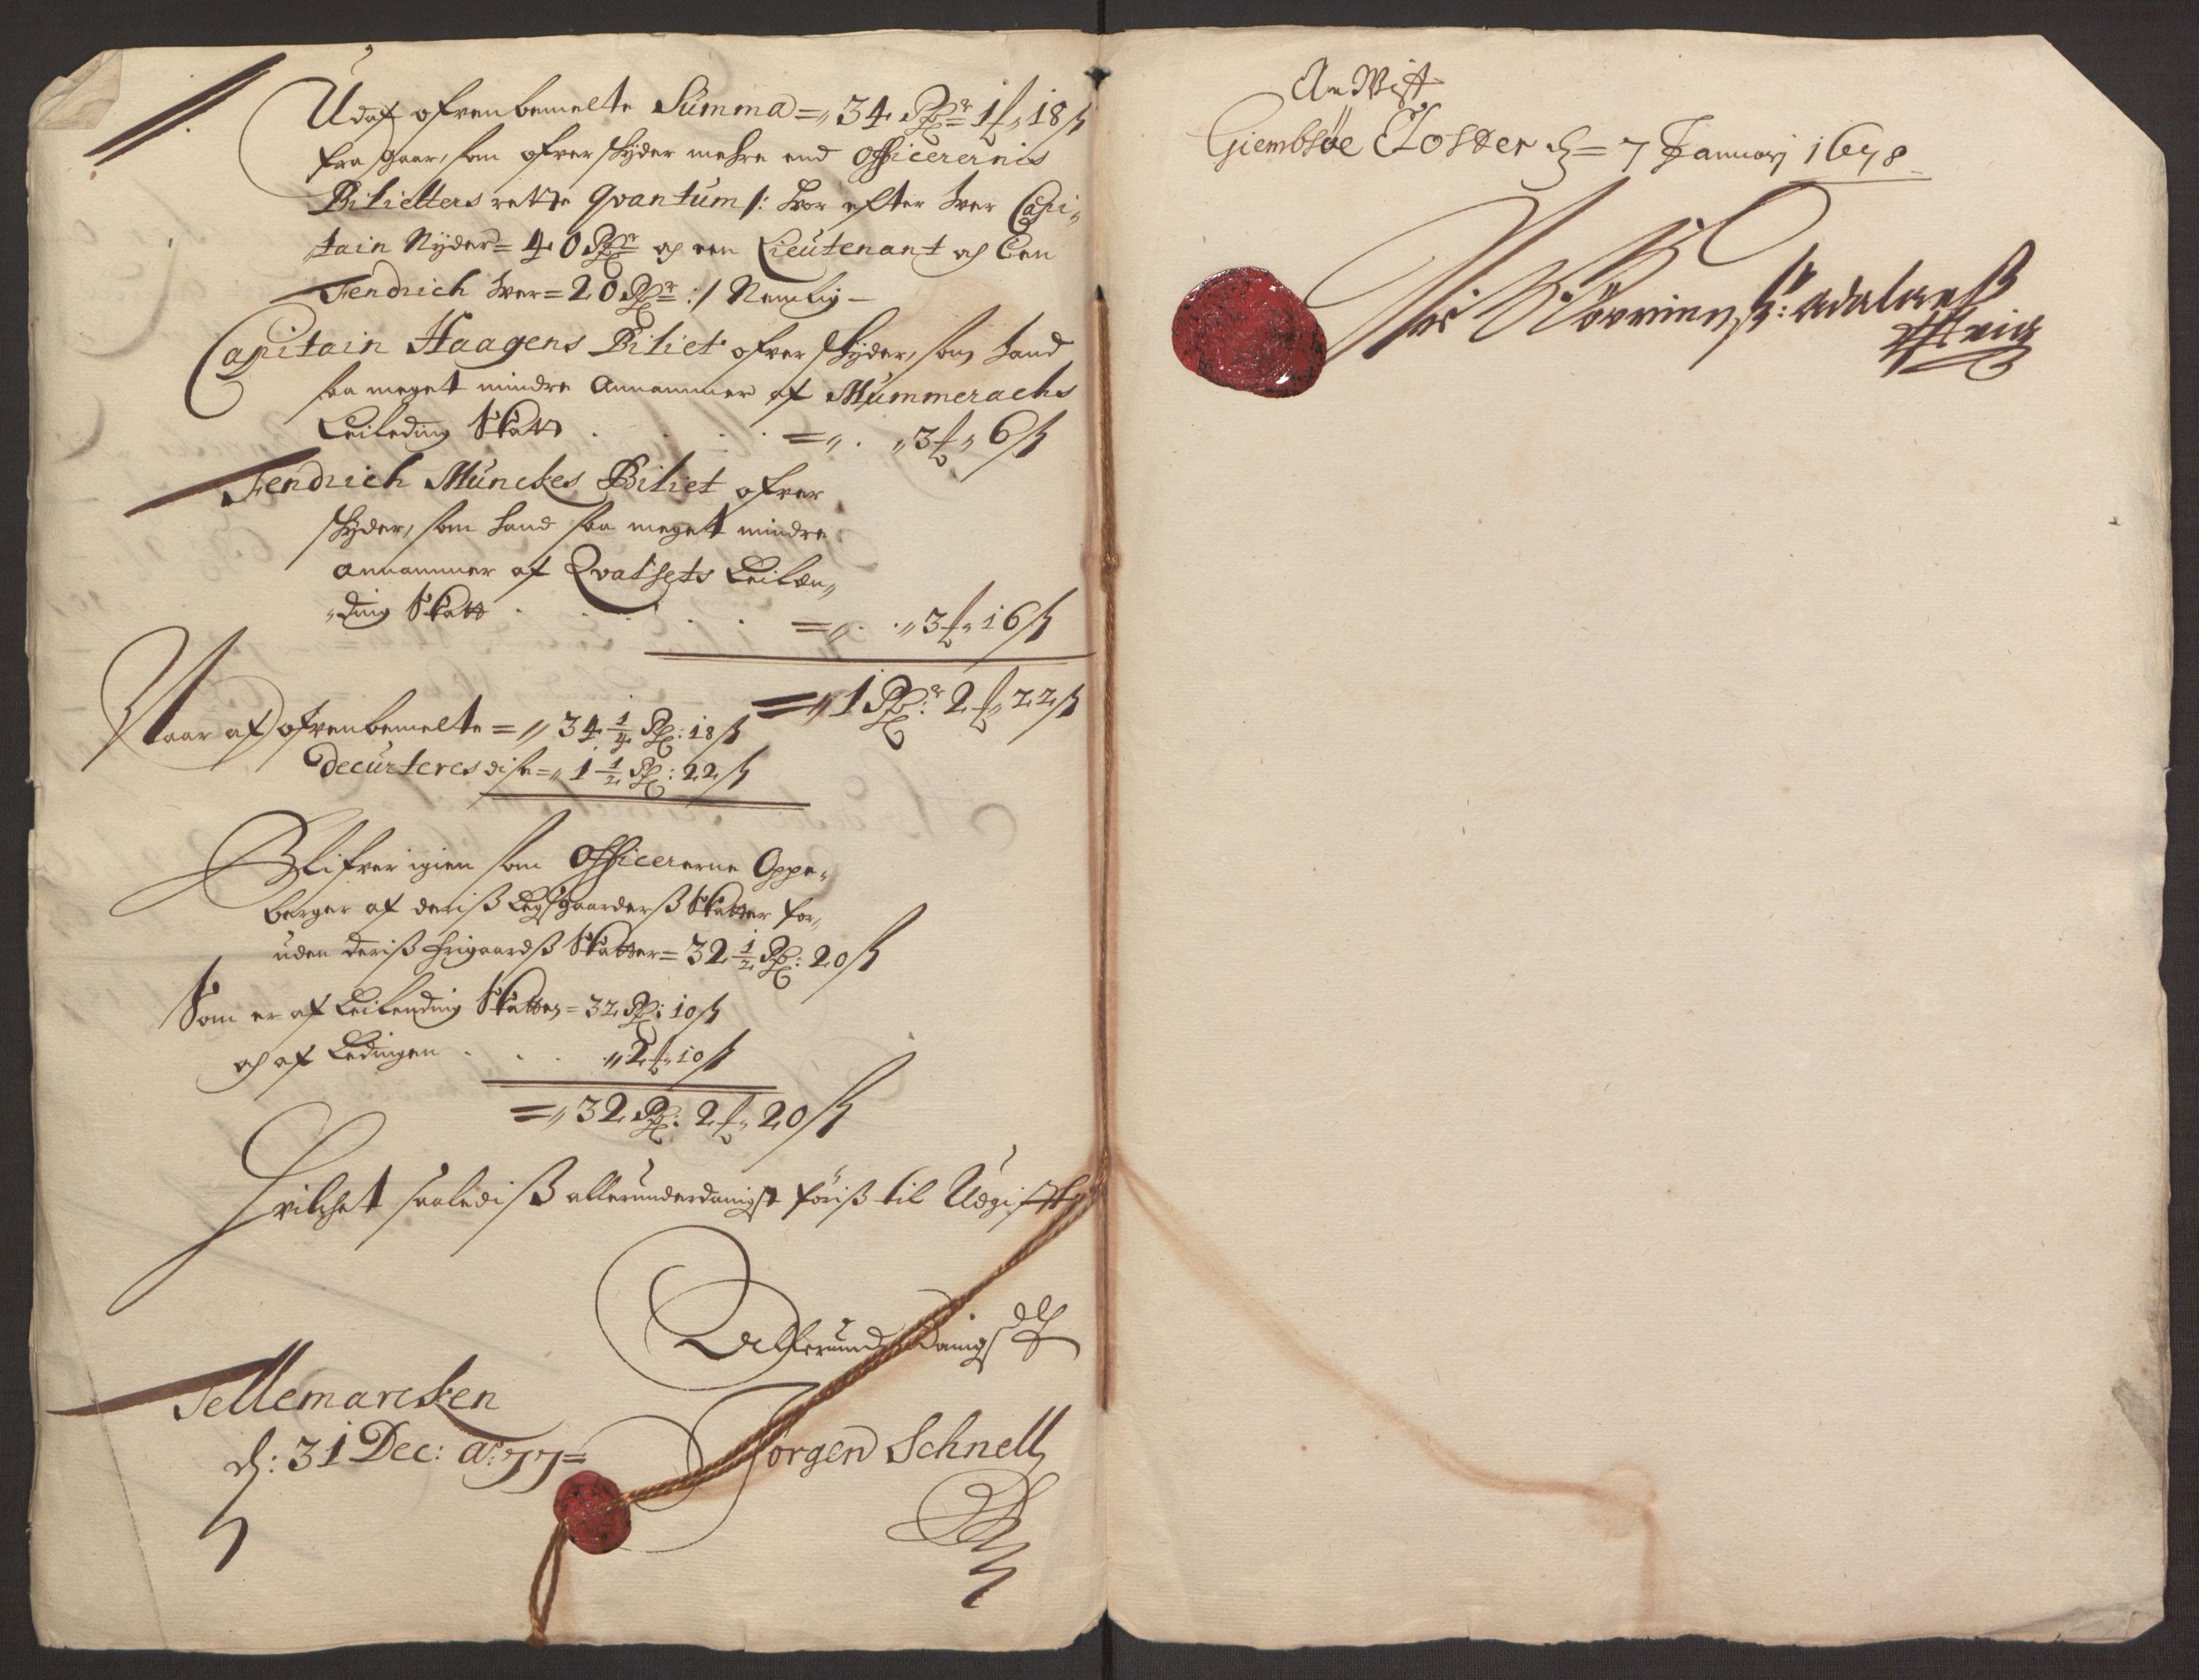 Udaf ofvenbemelte Summa = „ 34 Rdr 1 ₰ „ 18 ß
fra gaar, som ofverskyder mehre end Officerernis
Bilietters rette Qvantum /: hvor efter hver Capi-
tain Nyder = 40 Rdr og een Lieutenant og Een
Fendrich hver = 20 Rdr :/ Nemlig —
Capitain Haagens Biliet ofverskyder, som hand
saa meget mindre Annammer af Mummerachs
Leilending Skatt . . . . = „ . „ 3 ₰ „ 6 ß
Fendrich Munckes Biliet ofver
skyder, som hand saa megett mindre
annammer af Qvatsets Leilen-
ding Skatt . . . . . = „ . „ 3 ₰ „ 16 ß
= „ 1 Rdr 2 ₰ „ 22 ß
Naar af ofvenbemelte = „ 34 1/4 Rd: 18 ß
decurteres disse = „ 1 1/2 Rd: 22 ß
Blifver igien som Officererne Oppe-
berger af deris Legsgaarderß Skatter for-
uden deriß frigaardß Skatter = 32 1/2 Rd: 20 ß
Som er af Leilending Skatten = 32 Rd: 10 ß
og af Ledingen . . . „ 2 ₰ „ 10 ß
= „ 32 Rd: 2 ₰ „ 20 ß
Hvilchet saalediß allerunderdanigst föriß til Udgift
Allerunderdanigst
Tellemarcken
d: 31 Dec: ao: 77 =
Jörgen Schnell
An Vist
Giembsöe Closter d = 7 Januarj 1678